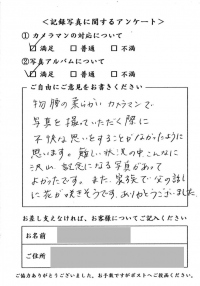 <記録写真に関するアンケート>
① カメラマンの対応について
☑ 満足 □ 普通 □ 不満
②写真アルバムについて
☑ 満足 □ 普通 □ 不満
ご自由にご意見をお書きください
物腰の柔らかい カメラマンで、
写真を撮っていただく際に
不快な思いをすることがなかったように
思います。難しい状況の中こんなに
沢山、記念になる写真があって
よかったです。また、家族で父の話し
に花が咲きそうです。ありがとうございました。
お差し支えなければ、お客様についてご記入ください
お名前
ご住所
ご協力ありがとうございました。お手数ですがポストへご投函ください。